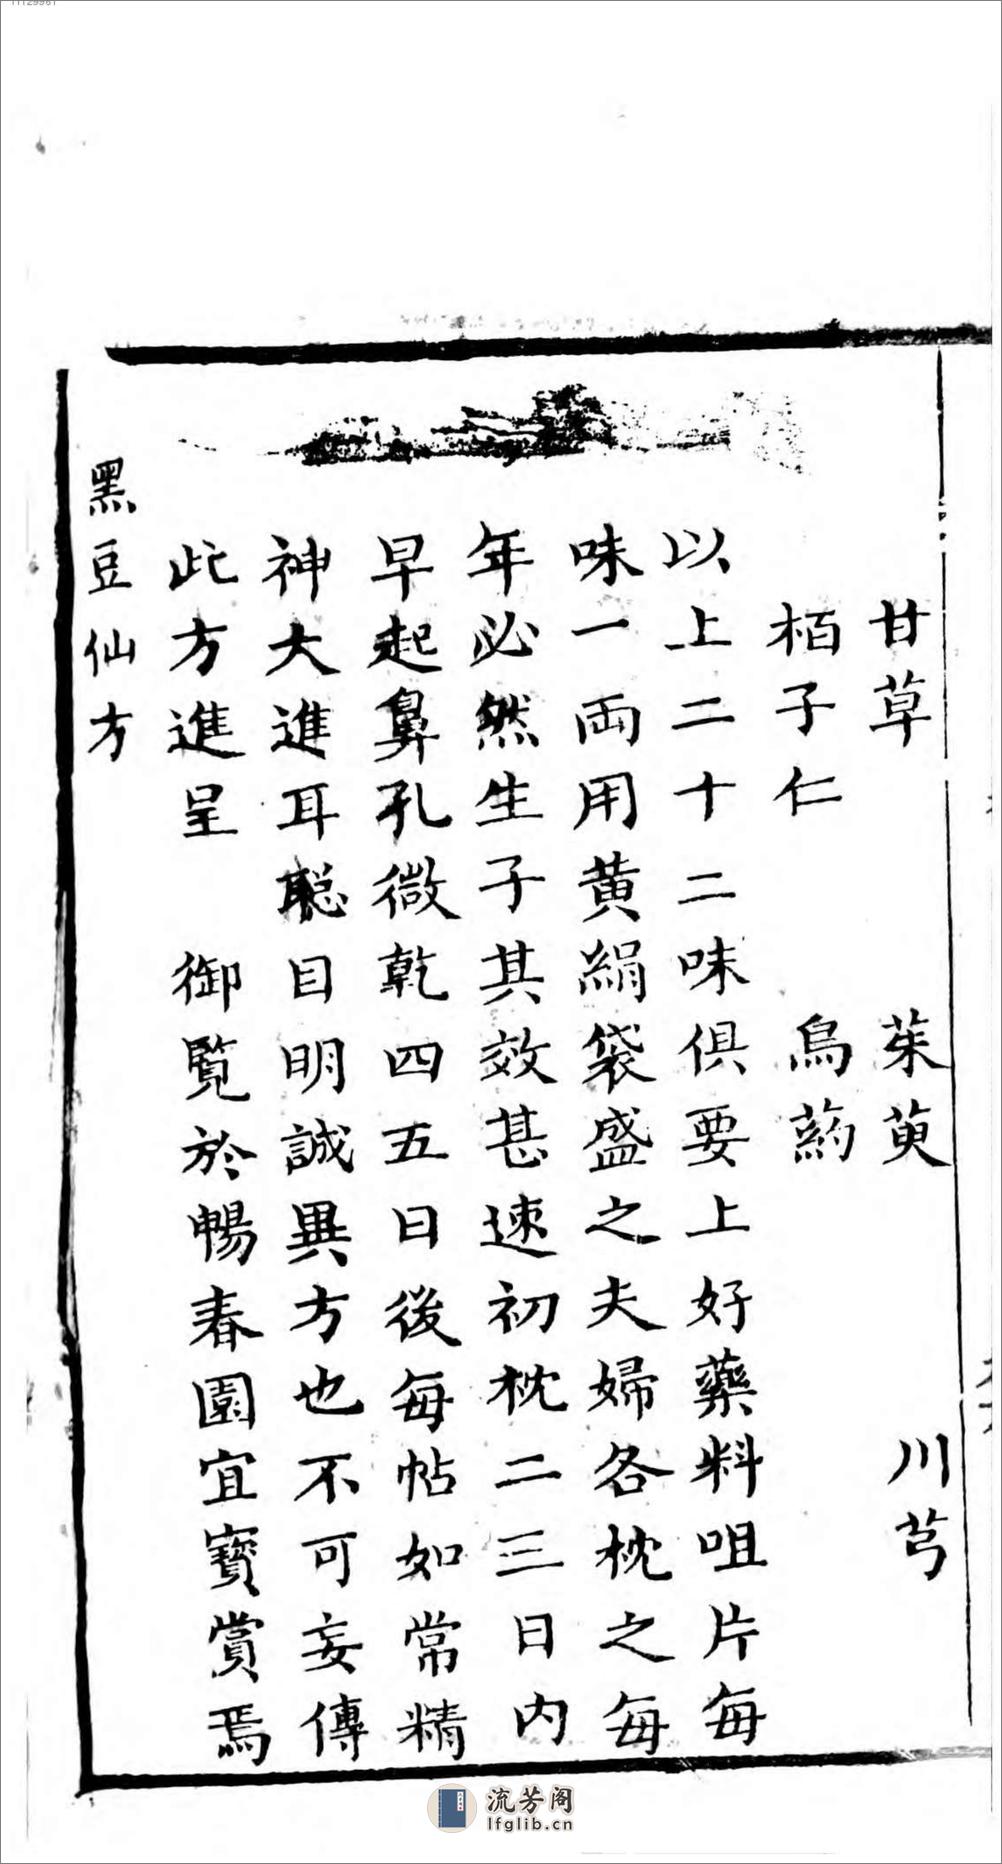 甘草　茱萸　川芎
栢子仁　烏葯
以上二十二味俱要上好藥料咀片每
味一両用黄絹袋盛之夫婦各枕之每
年必然生子其效甚速初枕二三日内
早起鼻孔微乾四五日後每帖如常精
神大進耳聪目明誠異方也不可妄傳
此方進呈　御覧於暢春園宜寶賞焉
黑豆仙方
流芳阁
lfglib.cn